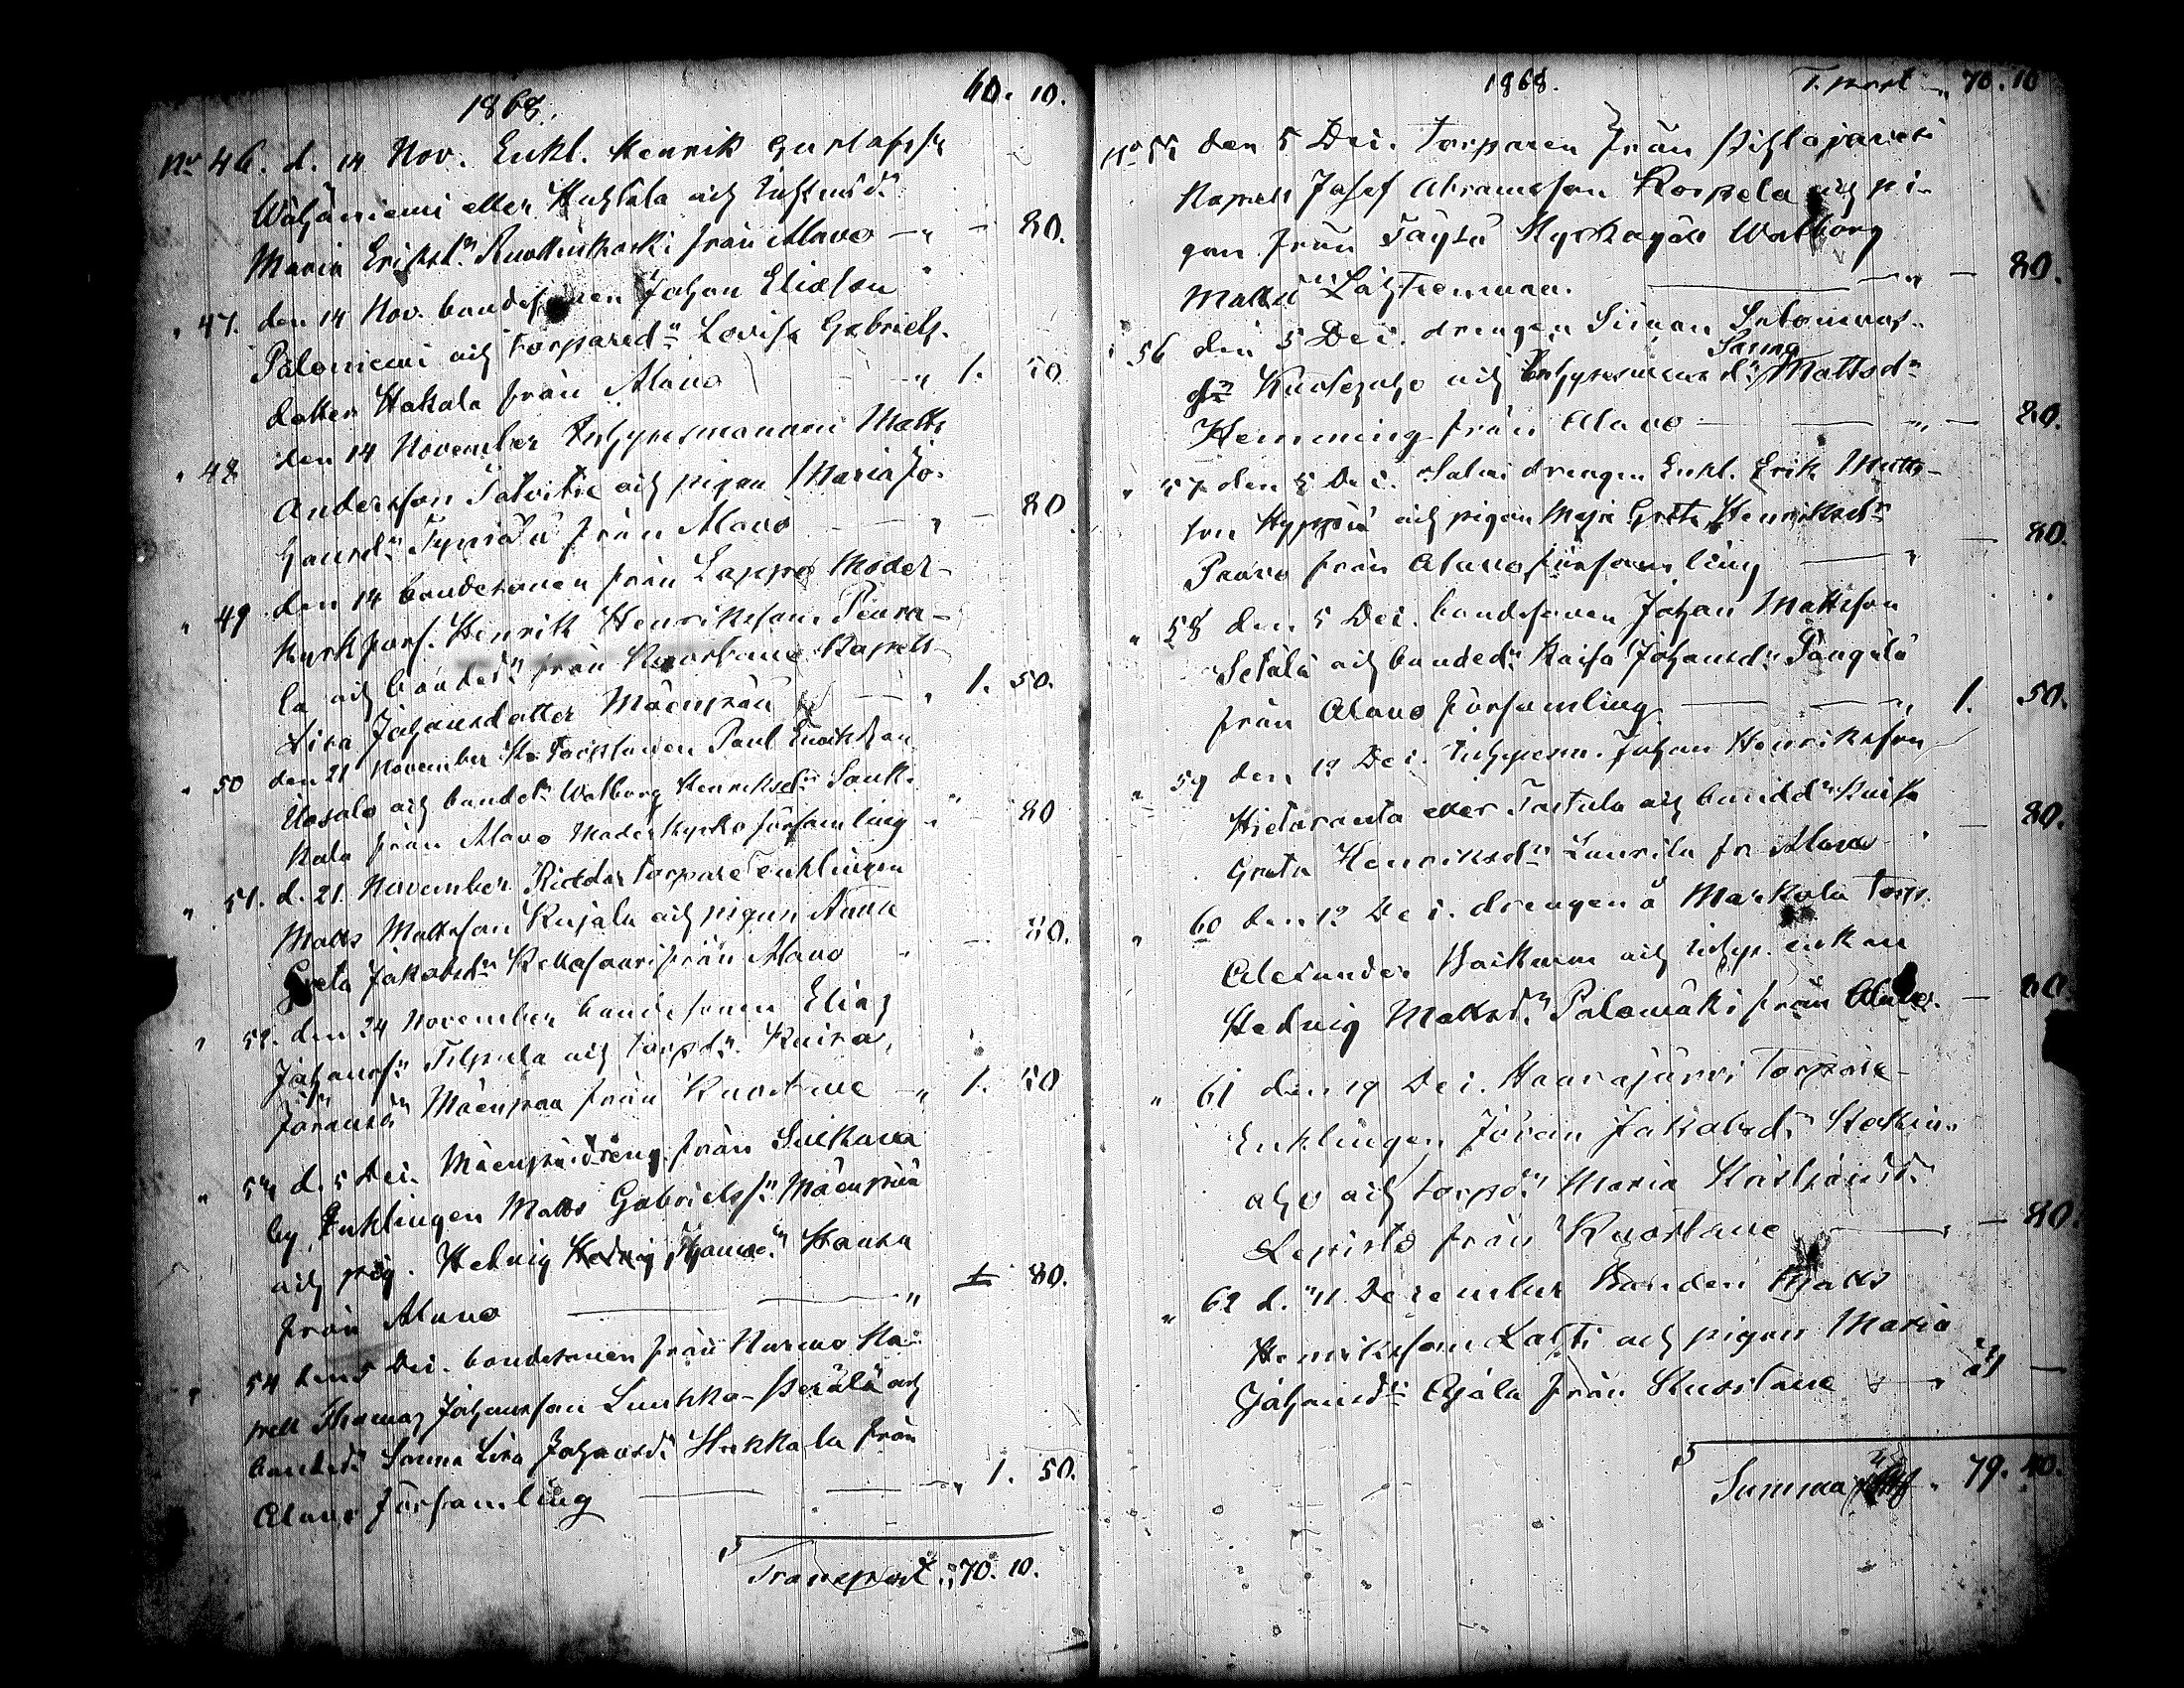 1868. 60. 10.
No 46. d. 14 Nov. Enkl. Henrik Gustafss:
Wähäniemi eller Huhtala och Inhmsd:
Maria Eriksd:r Ruottinkoski från Alavo — „ — 80.
„ 47. den 14 Nov. bondesonen Johan Eliasson
Paloniemi och torpared:r Lovisa Gabriels-
dotter Hakala från Alavo „ 1. 50
„ 48 den 14 November Inhysesmannen Matts
Andersson Salvitie och pigan Maria Jo-
hansd:r från Alavo — „ — 80
„ 49 den 14 bondesonen från Lappo Moder-
kyrkförs. Henrik Henriksson Peura-
la och bonded:r från Kuortane Kapell
Lisa Johansdotter Mäenpää — „ 1. 50.
„ 50 den 21 November Paul
Uosalo och bonded:r Walborg Henriksd:r Sauk-
kola från Alavo Moderkyrko församling „ — 80
„ 51. d. 21. November Torpare Enklingen
Matts Mattsson Kujala och pigan Anna
Greta Jakobsd:r från Alavo „ — 80.
„ 52. den 24 November bondesonen Elias
Johanss: och torpd:r Kaisa
Jöransd:r Mäenpää från Kuortane — „ 1. 50
„ 53 d. 5 Dec. Mäenpää dreng från Seikava
by, Enklingen Matts Gabrielss:n Mäenpää
och pig. Hedvig Johansd:r
från Alavo — — „ 80.
„ 54 den 5 Dec. bondesonen från Nurmo Ka-
pell Thomas Johansson Luukka-Perälä och
bonded:r Sanna Lisa Johansd: Hakkala från
Alavo församling — — „ 1. 50.
Transport „ 70. 10.
1868. T.port — „ 70. 10
No 55 den 5 Dec. torparen från Pihlajavesi
Kapell Josef Abramsson Korpela och pi-
gan från Töysä Walborg
Mattsd:r — „ — 80.
„ 56 den 5 Dec. drengen Simon Salomons-
Sanna
s:n och Inhysesmansd:r Mattsd:r
Hemming från Alavo — — „ — 80.
„ 57 den 5 Dec. Salmi drengen Enkl. Erik Matts-
son och pigan Maja Greta Henriksd:r
från Alavo församling — „ — 80.
„ 58 den 5 Dec. bondesonen Johan Mattsson
Setälä och bonded:r Kaisa Johansd:r
från Alavo församling — — „ 1. 50.
„ 59 den 12 Dec. Inhysesm. Johan Henriksson
Hietaranta eller Tastula och bonded:r Kaisa
Greta Henriksd:r Laurila fr Alavo „ — 80.
„ 60 den 12 Dec. drengen å Markola torp.
Alexander och inhys. enkan
Hedvig Mattsd:r Palomäki från Alavo. — 80
„ 61 den 19 Dec. Haarajärvi Torpare-
Enklingen Jöran Jakobsd:
aho och torpd:r Maria
Lepistö från Kuortane — „ — 80.
„ 62 d. 11 December bonden Matts
Henriksson Lahti och pigan Maria
Johansd:r Ojala från Kuortane — „ —
Summa „ 79. 40.